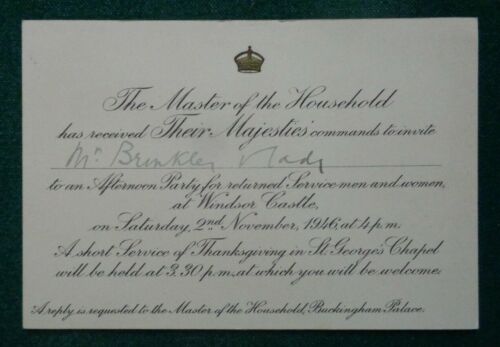 The Master of the Household
has received Their Majesties' commands to invite
Mr Brinkley & Lady
to an Afternoon Party for returned Service men and women,
at Windsor Castle,
on Saturday, 2nd November, 1946, at 4 p.m.
A short Service of Thanksgiving in St. George's Chapel
will be held at 3.30 p.m. at which you will be welcome.
A reply is requested to the Master of the Household, Buckingham Palace.